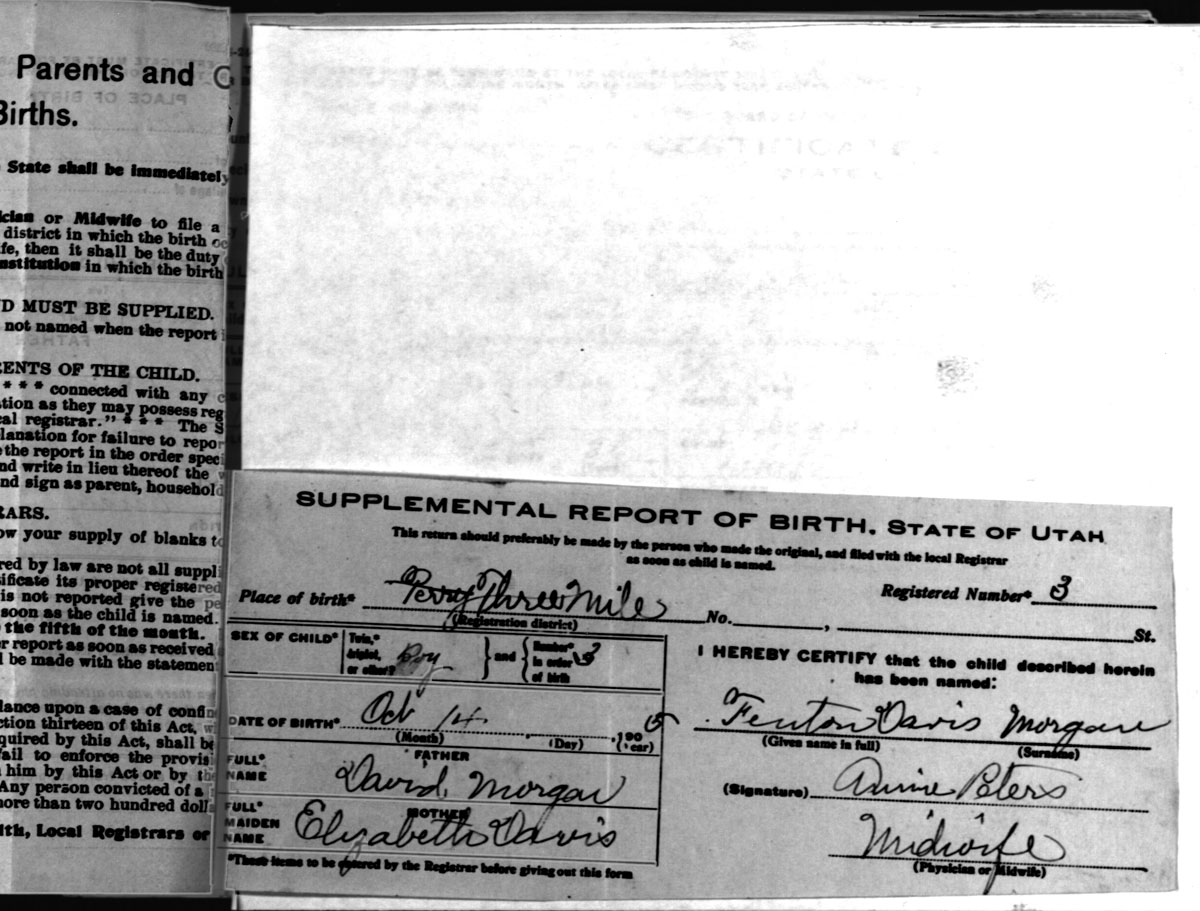 Parents and
Births.
State shall be immediately
or Midwife to file a
district in which the birth
then it shall be the duty
in which the birth
MUST BE SUPPLIED.
not named when the report
OF THE CHILD.
* * * connected with any
as they may possess
registrar." * * * The
for failure to
the report in the order
write in lieu thereof the
sign as parent,
your supply of blanks
by law are not all
its proper registered
is not reported give the
soon as the child is named.
the fifth of the month.
report as soon as received
be made with the
upon a case of
thirteen of this Act,
by this Act, shall be
to enforce the
him by this Act or by
Any person convicted of a
more than two hundred
Local Registrars or
PLACE OF BIRTH
FATHER
SUPPLEMENTAL REPORT OF BIRTH. STATE OF UTAH
This return should preferably be made by the person who made the original, and filed with the local Registrar
as soon as child is named.
Place of birth* Perry Three Mile No. , St.
Registered Number* 3
(Registration district)
SEX OF CHILD* Boy
Twin,*
triplet,
or other?
and
Number*
in order
of birth
3
I HEREBY CERTIFY that the child described herein
has been named:
DATE OF BIRTH* Oct 14 , 190 5
(Month) (Day) (Year)
Fenton Davis Morgan
(Given name in full) (Surname)
FULL*
NAME
FATHER
David Morgan
(Signature) Annie Peters
FULL*
MAIDEN
NAME
MOTHER
Elizabeth Davis
Midwife
(Physician or Midwife)
*These items to be entered by the Registrar before giving out this form